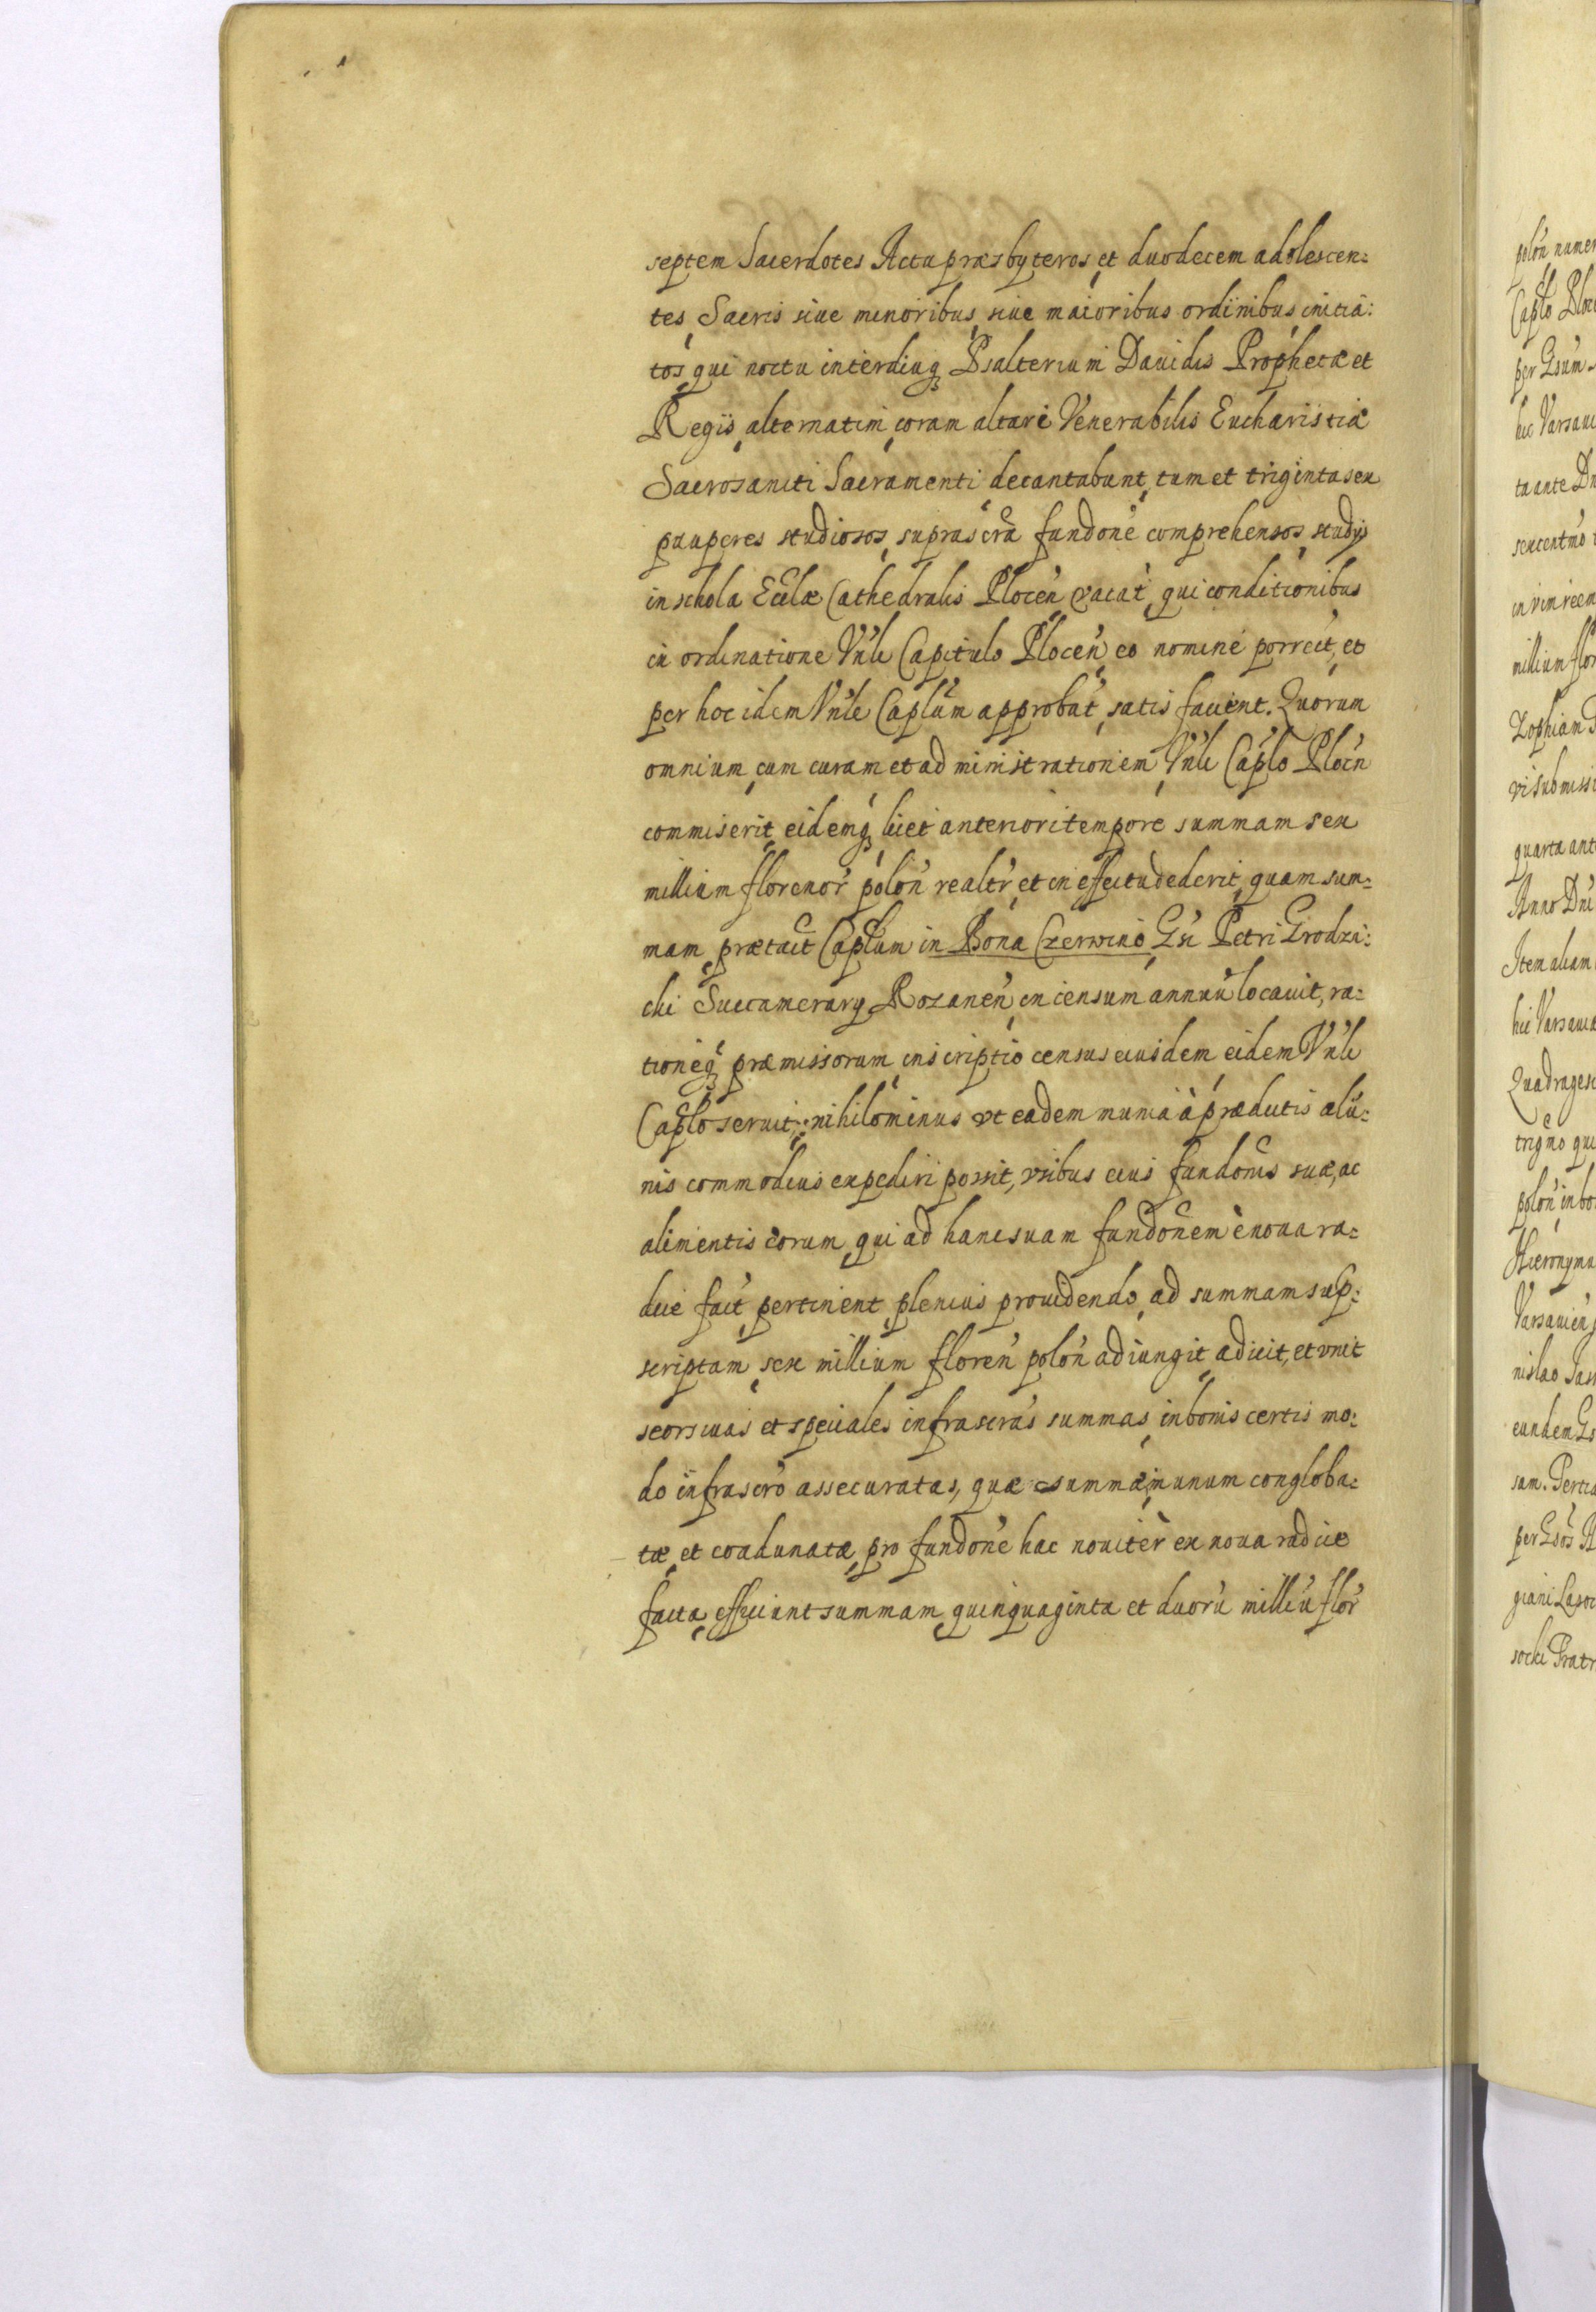 septem Sacerdotes Actu præsbyteros, et duodecem adolescen:
tes, Sacris siue minoribus, siue maioribus ordinibus, initia:
tos, qui noctu interdiuq; Psalterium Dauidis Prophetæ et
Regis, alternatim, coram altari Venerabilis Eucharistiæ
Sacrosancti Sacramenti decantabunt, tum et triginta sex
pauperes studiosos, suprascra fundone comprehensos, studijs
in schola Ecclæ Cathedralis Plocen vacat, qui conditionibus
in ordinatione Vnli Capitulo Plocen, eo nomine porrect, et
per hoc idem Vnle Caplum approbat, satis facient. Quorum
omnium, cum curam et administrationem, Vnli Caplo Plocn
commiserit, eidemq; licet anteriori tempore summam sex
millium florenor polon realtr, et in effectu dederit, quam sum:
mam, prætact Caplum in Bona Czerwino, Gsi Petri Grodzi:
cki Succamerarij Rozanen, in censum annuu locauit, ra:
tioneq; præmissorum, inscriptio census eiusdem eidem Vnli
Caplo seruit, nihilominus vt eadem munia à prædictis alu:
nis commodius expediri possit, vsibus eius fundonis suæ, ac
alimentis eorum, qui ad hanc suam fundonem è noua ra:
dice fact, pertinent, plenius prouidendo, ad summam sup:
scriptam, sex millium floren polon adiungit, adicit, et vnit
seorsiuas et speciales infrascras summas, in bonis certis mo:
do infrascro assecuratas, quæ summæ, in unum congloba:
tæ, et coadunatæ, pro fundone hac nouiter ex noua radice
facta, efficiunt summam, quinquaginta et duoru milliu flor